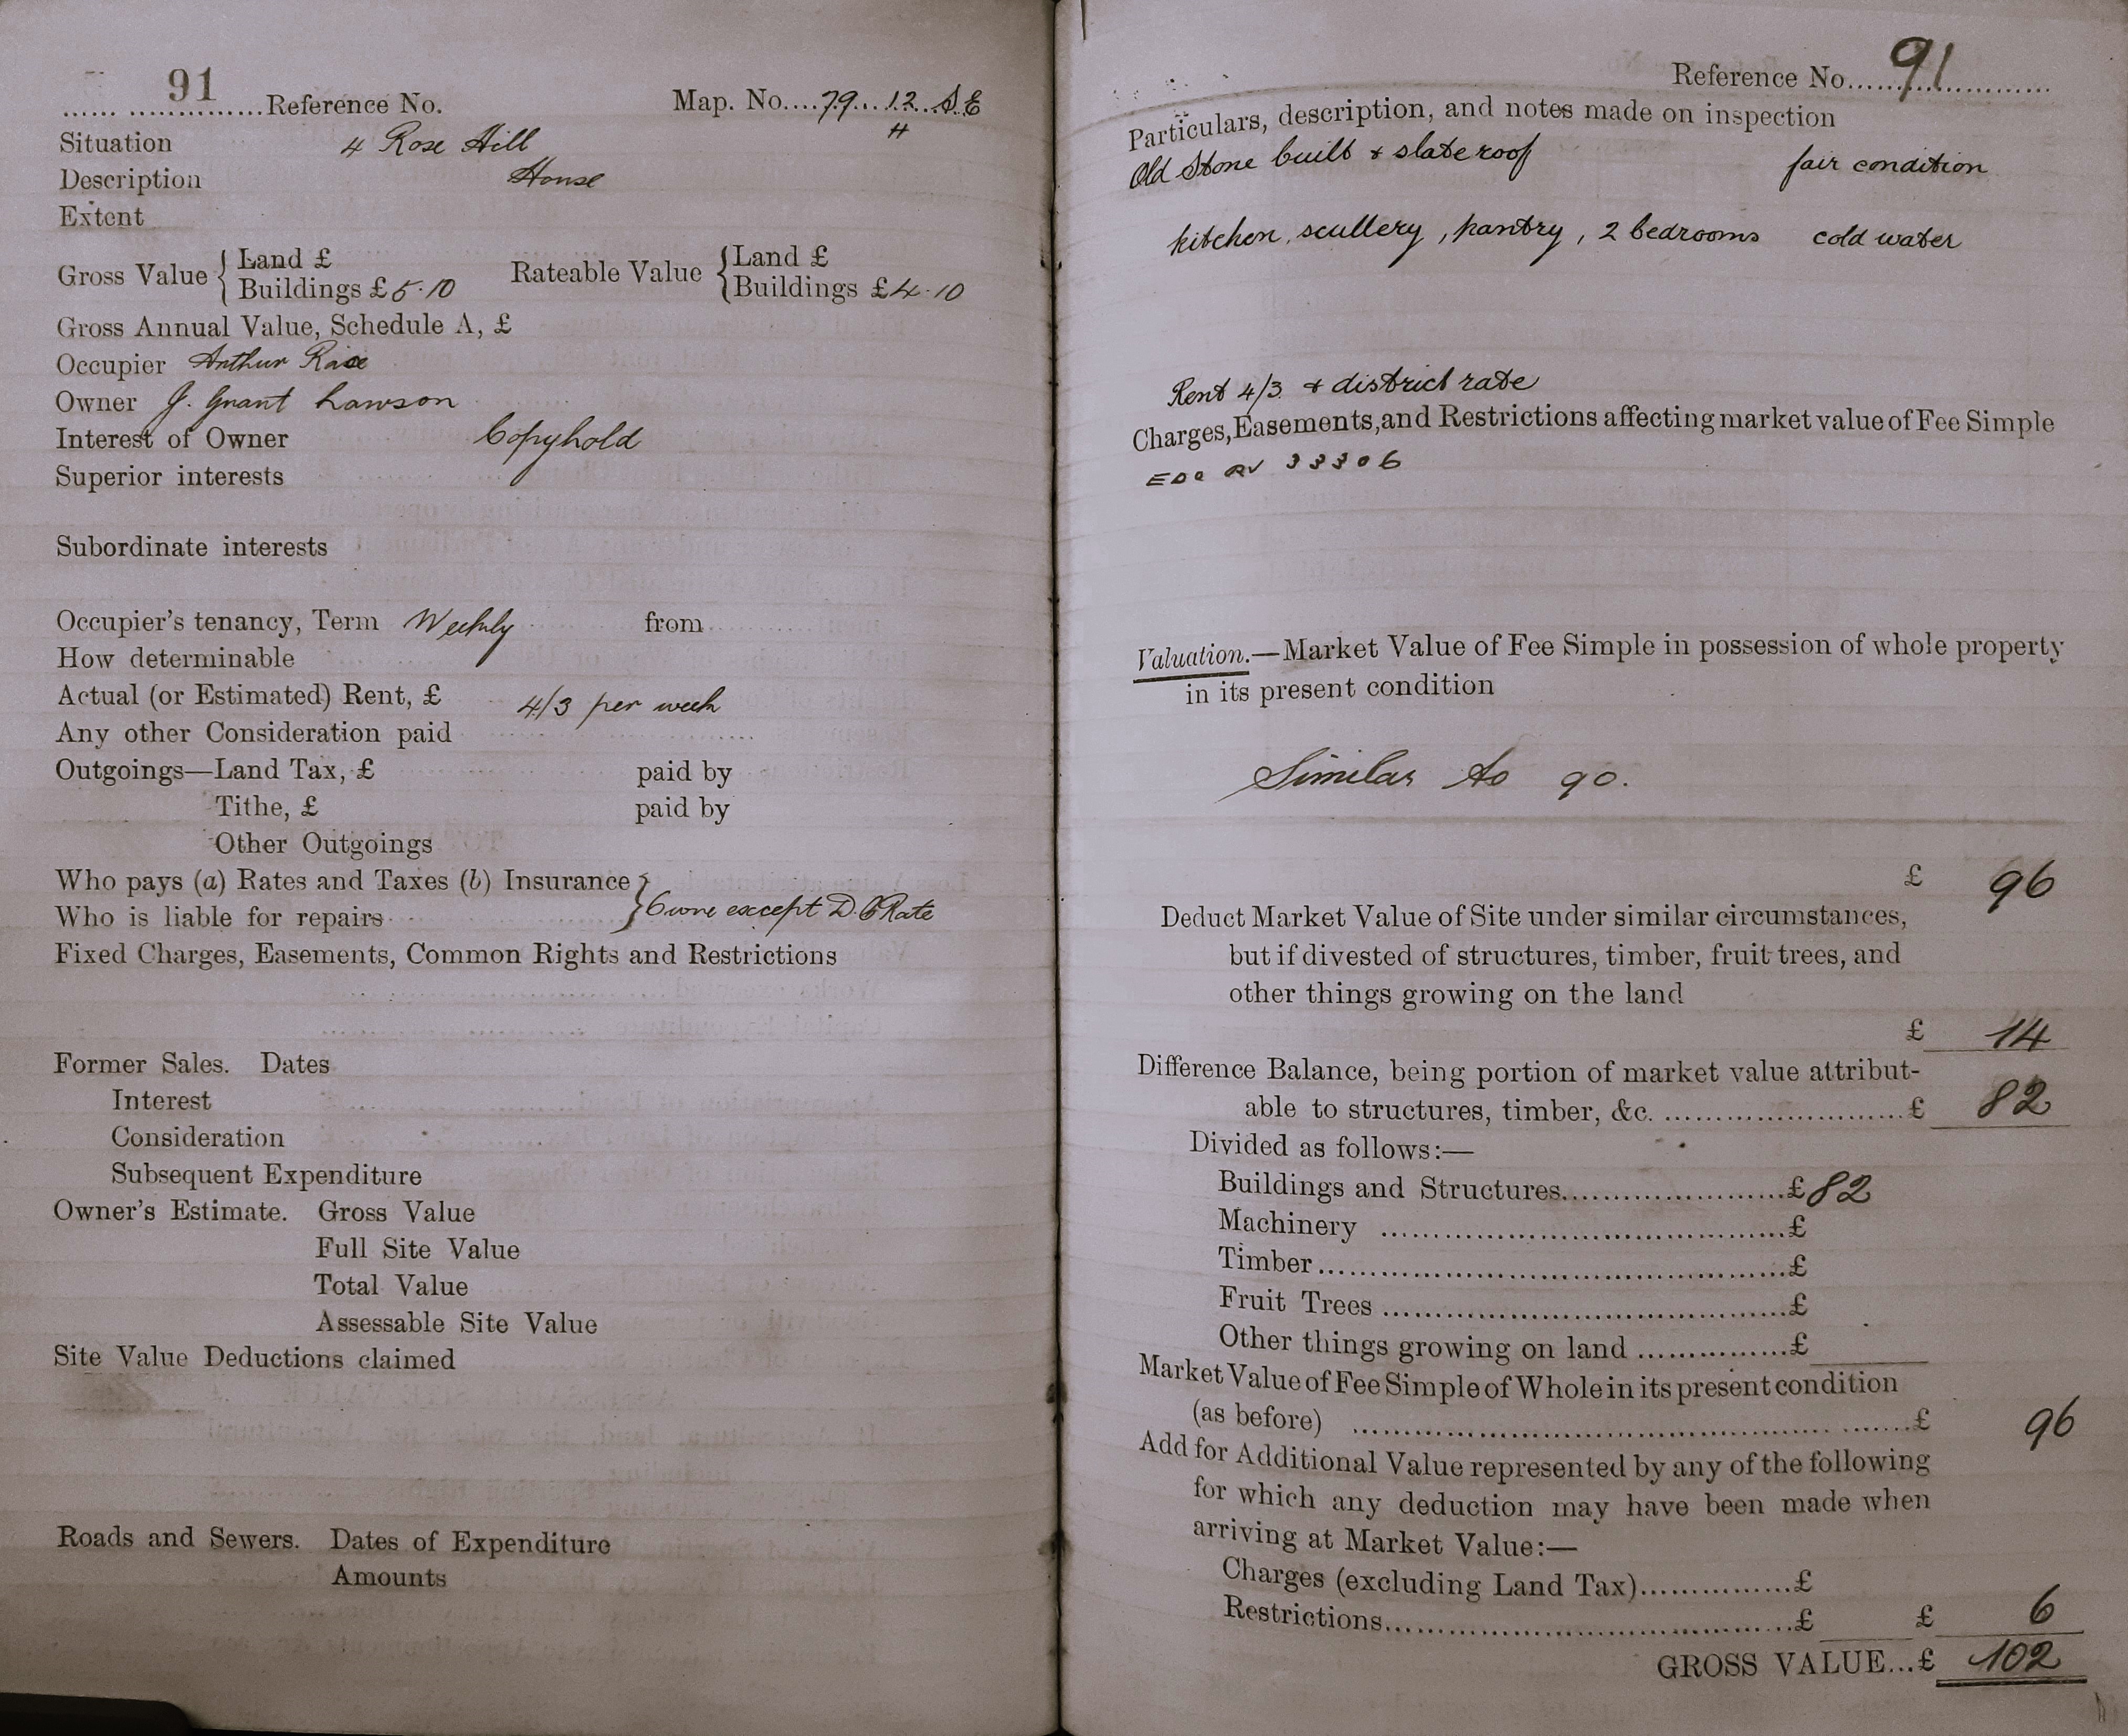 91 Reference No. Map. No. 79 12 S.E
H
Situation 4 Rose Hill
Description House
Extent
Gross Value { Land £ Rateable Value { Land £
Buildings £5.10 Buildings £4.10
Gross Annual Value, Schedule A, £
Occupier Arthur
Owner J. Grant Lawson
Interest of Owner Copyhold
Superior interests
Subordinate interests
Occupier's tenancy, Term Weekly from
How determinable
Actual (or Estimated) Rent, £ 4/3 per week
Any other Consideration paid
Outgoings—Land Tax, £ paid by
Tithe, £ paid by
Other Outgoings
Who pays (a) Rates and Taxes (b) Insurance }
Who is liable for repairs } Owner except D.C Rate
Fixed Charges, Easements, Common Rights and Restrictions
Former Sales. Dates
Interest
Consideration
Subsequent Expenditure
Owner's Estimate. Gross Value
Full Site Value
Total Value
Assessable Site Value
Site Value Deductions claimed
Roads and Sewers. Dates of Expenditure
Amounts
Reference No. 91
Particulars, description, and notes made on inspection
Old Stone built & slate roof fair condition
kitchen, scullery, pantry, 2 bedrooms cold water
Rent 4/3 & district rate
Charges, Easements, and Restrictions affecting market value of Fee Simple
33306
Valuation.—Market Value of Fee Simple in possession of whole property
in its present condition
Similar to 90.
£ 96
Deduct Market Value of Site under similar circumstances,
but if divested of structures, timber, fruit trees, and
other things growing on the land
£ 14
Difference Balance, being portion of market value attribut-
able to structures, timber, &c. £ 82
Divided as follows:—
Buildings and Structures £82
Machinery £
Timber £
Fruit Trees £
Other things growing on land £
Market Value of Fee Simple of Whole in its present condition
(as before) £ 96
Add for Additional Value represented by any of the following
for which any deduction may have been made when
arriving at Market Value:—
Charges (excluding Land Tax) £
Restrictions £ £ 6
GROSS VALUE...£ 102